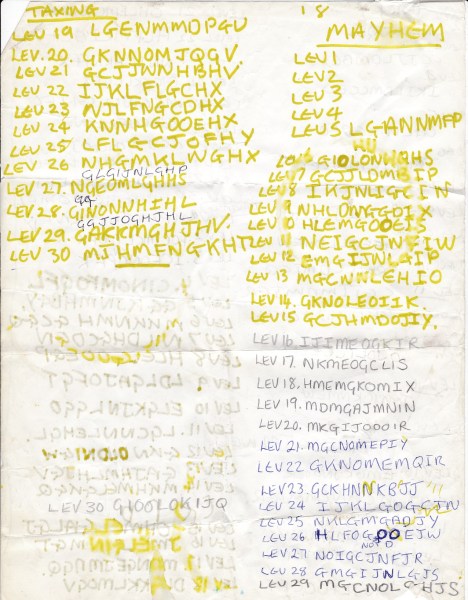 TAXING
LEV 19 LGENMMDPGU
LEV.20. GKNNOMJQGV.
LEV 21 GCJJWNHBHV
LEV 22 IJKLFLGCHX
LEV 23 NJLFNGCDHX
LEV 24 KNNHGOOEHX
LEV 25 LFLGCJOFHY
LEV 26 NHGMKLWGHX
GLGIJNLGHP
LEV 27. NGEOMLGHHS
LEV 28. GINONNIHL
GGJJOGHJHL
LEV 29. GHKKMGHJHV.
LEV 30 MJHMFNGKHT
LEV 30 GIOOLOKIJQ
18
MAYHEM
LEV 1
LEV 2
LEV 3
LEV 4
LEV 5 LGANNMFP
LEV 6 GIOLONHQHS
LEV 7 GCJJLDMBIP
LEV 8 IKJNLIGCIN
LEV 9 NHLDNGGDIX
LEV 10 HLEMGOOEIS
LEV 11 NEIGCJNFIW
LEV 12 EMGIJNLGIP
LEV 13 MGCNNLEHIO
LEV 14. GKNOLEOIIK.
LEV 15 GCJHMDOJIY.
LEV 16 IJIMEOGKIR
LEV 17. NKMEOGCLIS
LEV 18. HMEMGKOMIX
LEV 19. MDMGAJMNIN
LEV 20. MKGIJOOOIR
LEV 21. MGCNOMEPIY
LEV 22 GKNOMEMQIR
LEV 23. GCKHNNKBJJ
LEV 24 IJKLGOGCJN
LEV 25 NKLGMGADJY
LEV 26 HLFOGOOEJW
NOT D
LEV 27 NOIGCJNFJR
LEV 28 GMGIJNLGJS
LEV 29 MGCNOLGHJS